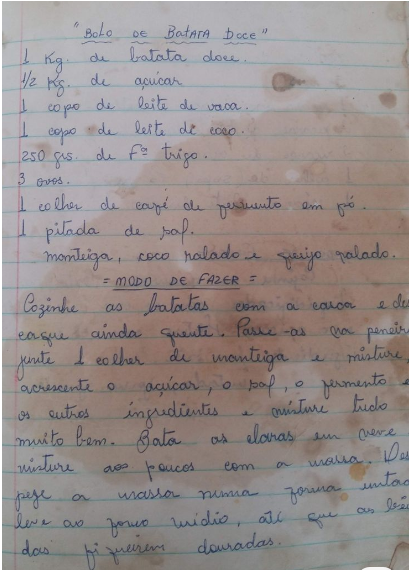 "BOLO DE BATATA DOCE"
1 Kg. de batata doce.
1/2 Kg. de açúcar
1 copo de leite de vaca.
1 copo de leite de coco.
250 grs. de Fª trigo.
3 ovos.
1 colher de café de fermento em pó.
1 pitada de sal.
manteiga, coco ralado e queijo ralado.
= MODO DE FAZER =
Cozinhe as batatas com a casca e des
casque ainda quente. Passe-as na peneira
junte 1 colher de manteiga e misture,
acrescente o açúcar, o sal, o fermento e
os outros ingredientes e misture tudo
muito bem. Bata as claras em neve e
misture aos poucos com a massa. Des
peje a massa numa forma untada
leve ao forno médio, até que as bor
das fiquem douradas.